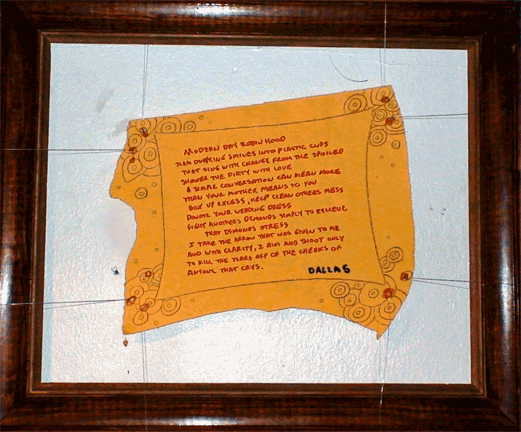 MODERN DAY ROBIN HOOD
DUMPING SMILES INTO PLASTIC CUPS
THAT SING WITH CHANGE FROM THE SPOILED
SHOWER THE DIRTY WITH LOVE
A SIMPLE CONVERSATION CAN MEAN MORE
THAN YOUR MOTHER MEANS TO YOU
BOX UP EXCESS, HELP CLEAN OTHERS MESS
DONATE YOUR WEDDING DRESS
FIGHT ANOTHERS DEMONDS SIMPLY TO RELIEVE
THAT DEMONDS STRESS
I TAKE THE ARROW THAT WAS GIVEN TO ME
AND WITH CLARITY, I AIM AND SHOOT ONLY
TO KILL THE TEARS OFF OF THE CHEEKS OF
ANYONE THAT CRYS.
DALLAS